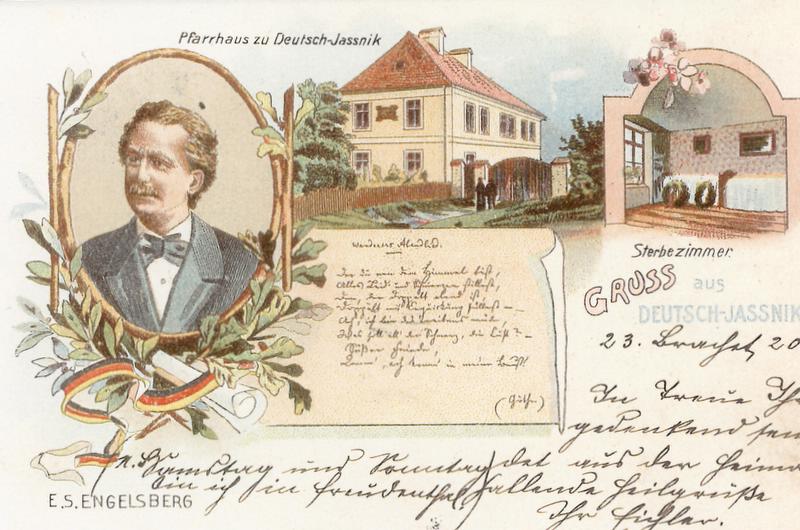 Pfarrhaus zu Deutsch-Jassnik
Wanderers Abendlied.
Der du von dem Himmel bist,
Alles Leid und Schmerzen stillest,
den, der doppelt elend ist
doppelt mit Erquickung füllest –
Ach, ich bin des Treibens müde
Was soll all der Schmerz, die Lust? –
Süßer Friede!
Komm, ach komm in meine Brust!
(Göthe.)
Sterbezimmer.
GRUSS aus
DEUTSCH-JASSNIK
23. Brachet 20
In Treue Ih
gedenkend sen
det aus der Heima
allende Heilgrüße
Ihr Eichler.
Samstag und Sonntag
bin ich in Freudenthal
E.S. ENGELSBERG